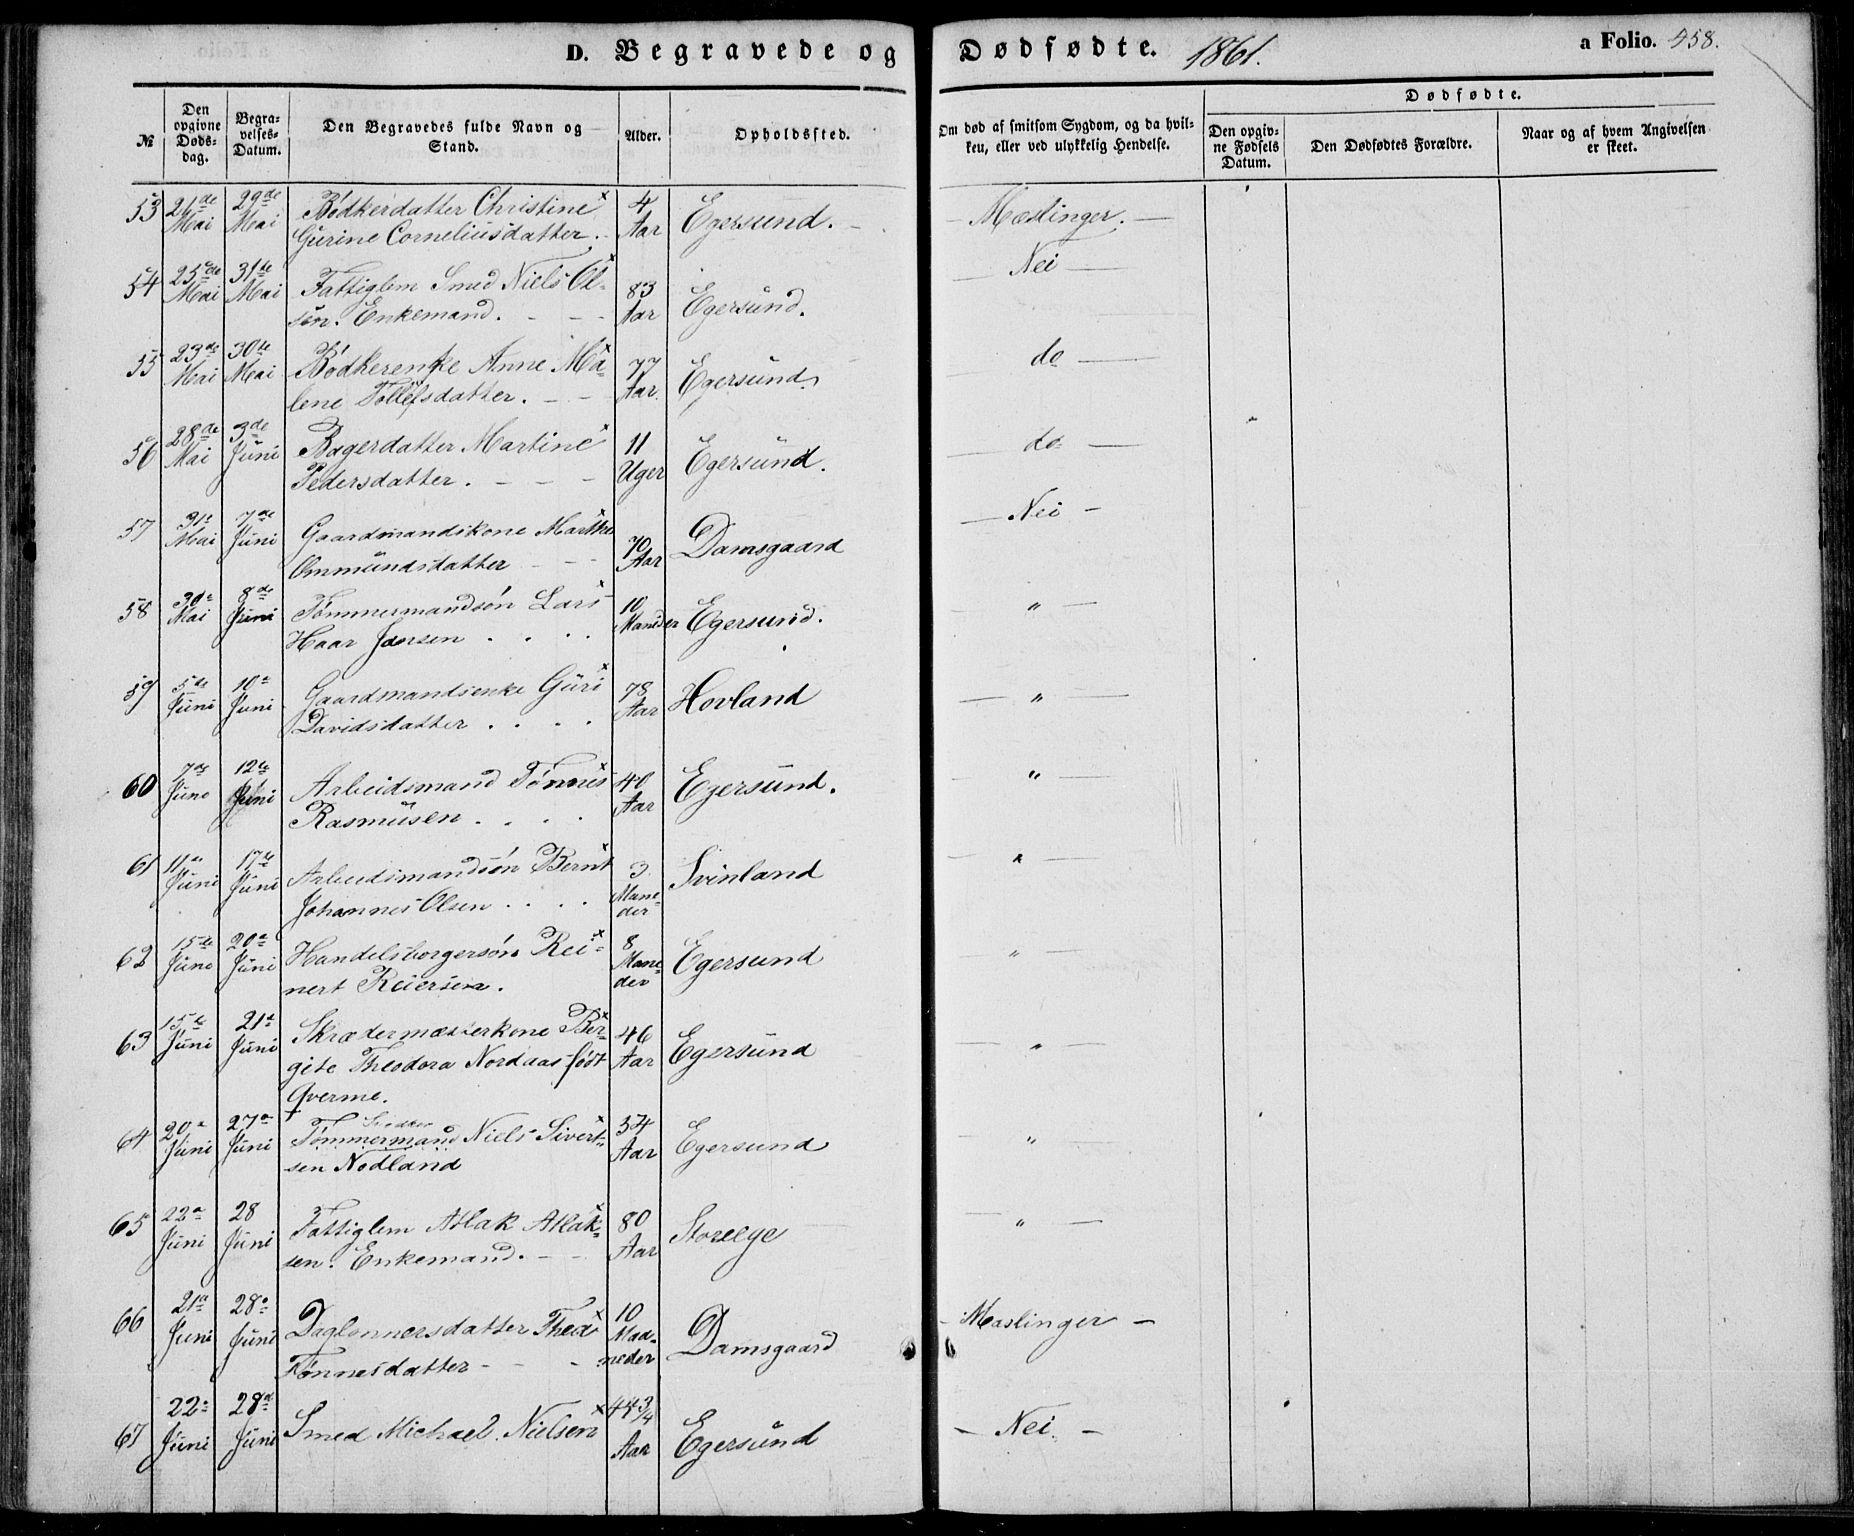 D. Begravede og Dødfødte. 1861. a Folio. 458.
Dødfødte.
No Den opgivne Dødsdag. Begravelses-Datum. Den Begravedes fulde Navn og Stand. Alder. Opholdssted. Om død af smitsom Sygdom, og da hvilken, eller ved ulykkelig Hendelse. Den opgivne Fødsels Datum. Den Dødfødtes Forældre. Naar og af hvem Angivelsen er skeet.
53 21de Mai 29de Mai Bødkerdatter Christine 4 Aar Egersund. Mæslinger.
Gurine Corneliusdatter.
54 25de Mai 31te Mai Fattiglem Smed Niels Ol- 83 Aar Egersund. Nei
sen. Enkemand.
55 23de Mai 30te Mai Bødkerenke Anne Ma- 77 Aar. Egersund. do
lene Tollefsdatter.
56 28de Mai 3de Juni Bagerdatter Martine 11 Uger Egersund. do
Pedersdatter.
57 31te Mai 7de Juni Gaardmandskone Marthe 70 Aar Damsgaard Nei
Ommundsdatter
58 30te Mai 8de Juni Tømmermandsøn Lars 10 Maneder Egersund. "
Haar Jansen
59 5te Juni 10te Juni Gaardmandsenke Guri 78 Aar Hovland "
Davidsdatter
60 7de Juni 12te Juni Arbeidsmand Tønnes 40 Aar Egersund. "
Rasmusen
61 11te Juni 17te Juni Arbeidsmandsøn Bernt 3 Maneder Svinland "
Johannes Olsen
62 15te Juni 20de Juni Handelsborgersøn Rei- 8 Maneder Egersund "
nert Reiersen.
63 15te Juni 21de Juni Skrædermæsterkone Ber- 46 Aar Egersund "
gite Theodora Nordaas født
Qverme.
64 20de Juni 27de Juni Tømmermand Niels Sivert- 34 Aar Egersund "
sen Nodland
65 22de Juni 28 Juni Fattiglem Aslak Aslak- 80 Aar Storeege "
sen. Enkemand.
66 21de Juni 28de Juni Daglønnersdatter Thea 10 Maaneder Damsgaard Mæslinger
Tønnesdatter
67 22de Juni 28de Juni Smed Michael Nielsen 44 3/4 Aar Egersund Nei.